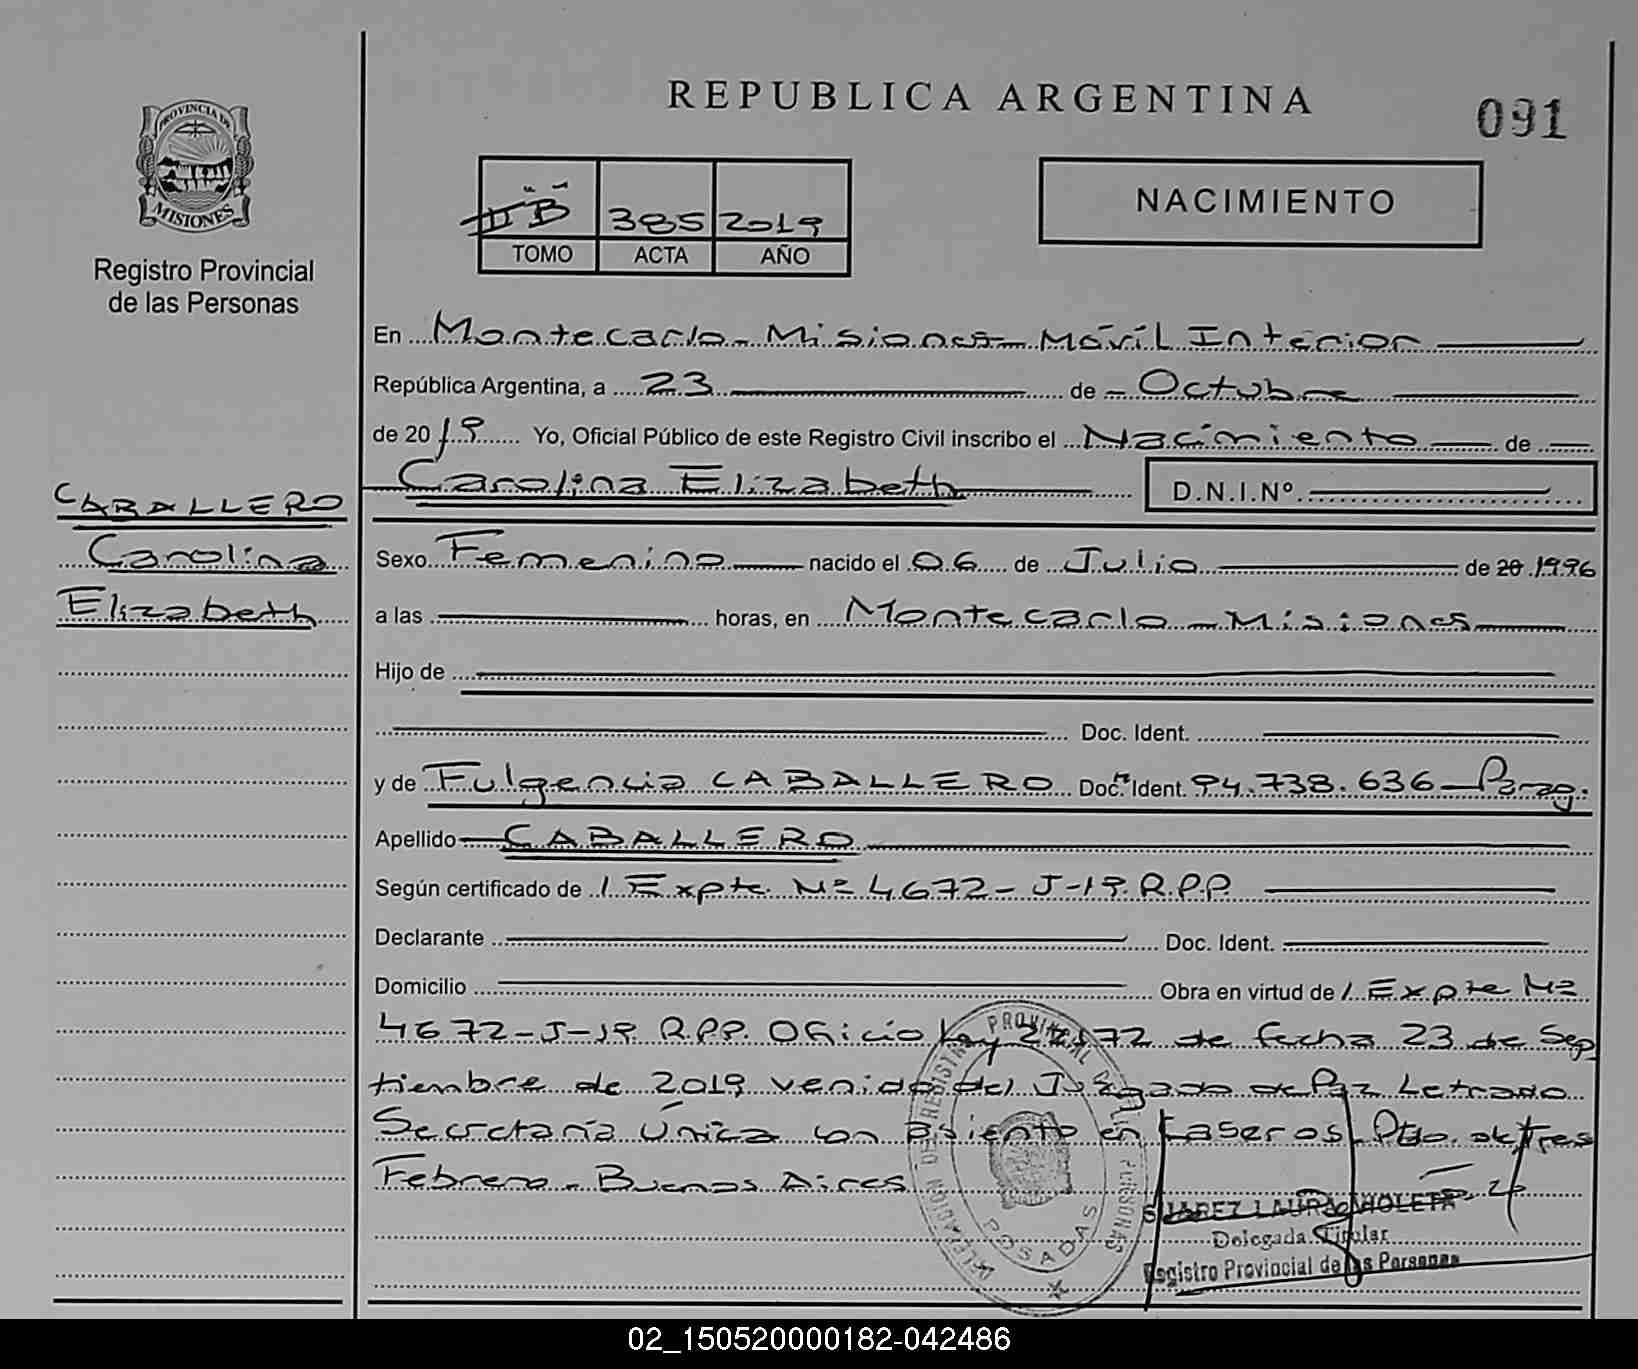 REPUBLICA ARGENTINA
091
PROVINCIA DE
MISIONES
Registro Provincial
de las Personas
II B 385 2019
TOMO ACTA AÑO
NACIMIENTO
En Montecarlo - Misiones - Móvil Interior
República Argentina, a 23 de - Octubre
de 2019 Yo, Oficial Público de este Registro Civil inscribo el Nacimiento de
Carolina Elizabeth D.N.I.Nº.
CABALLERO
Carolina
Elizabeth
Sexo Femenino nacido el 06 de Julio de 20 1996
a las horas, en Montecarlo - Misiones
Hijo de
Doc. Ident.
y de Fulgencia CABALLERO Doc. Ident. 94.738.636 - Parag.
Apellido CABALLERO
Según certificado de / Expte. Nº 4672 - J - 19. R.P.P.
Declarante Doc. Ident.
Domicilio Obra en virtud de / Expte Nº
4672 - J - 19. R.P.P. Oficio Ley 22172 de fecha 23 de Sep
tiembre de 2019 venido del Juzgado de Paz Letrado
Secretaría Única con asiento en Caseros - Ptdo. de Tres
Febrero - Buenos Aires
DELEGACION DE REGISTRO PROVINCIAL DE LAS PERSONAS
POSADAS
SUAREZ LAURA VIOLETA
Delegada Titular
Registro Provincial de las Personas
02_150520000182-042486